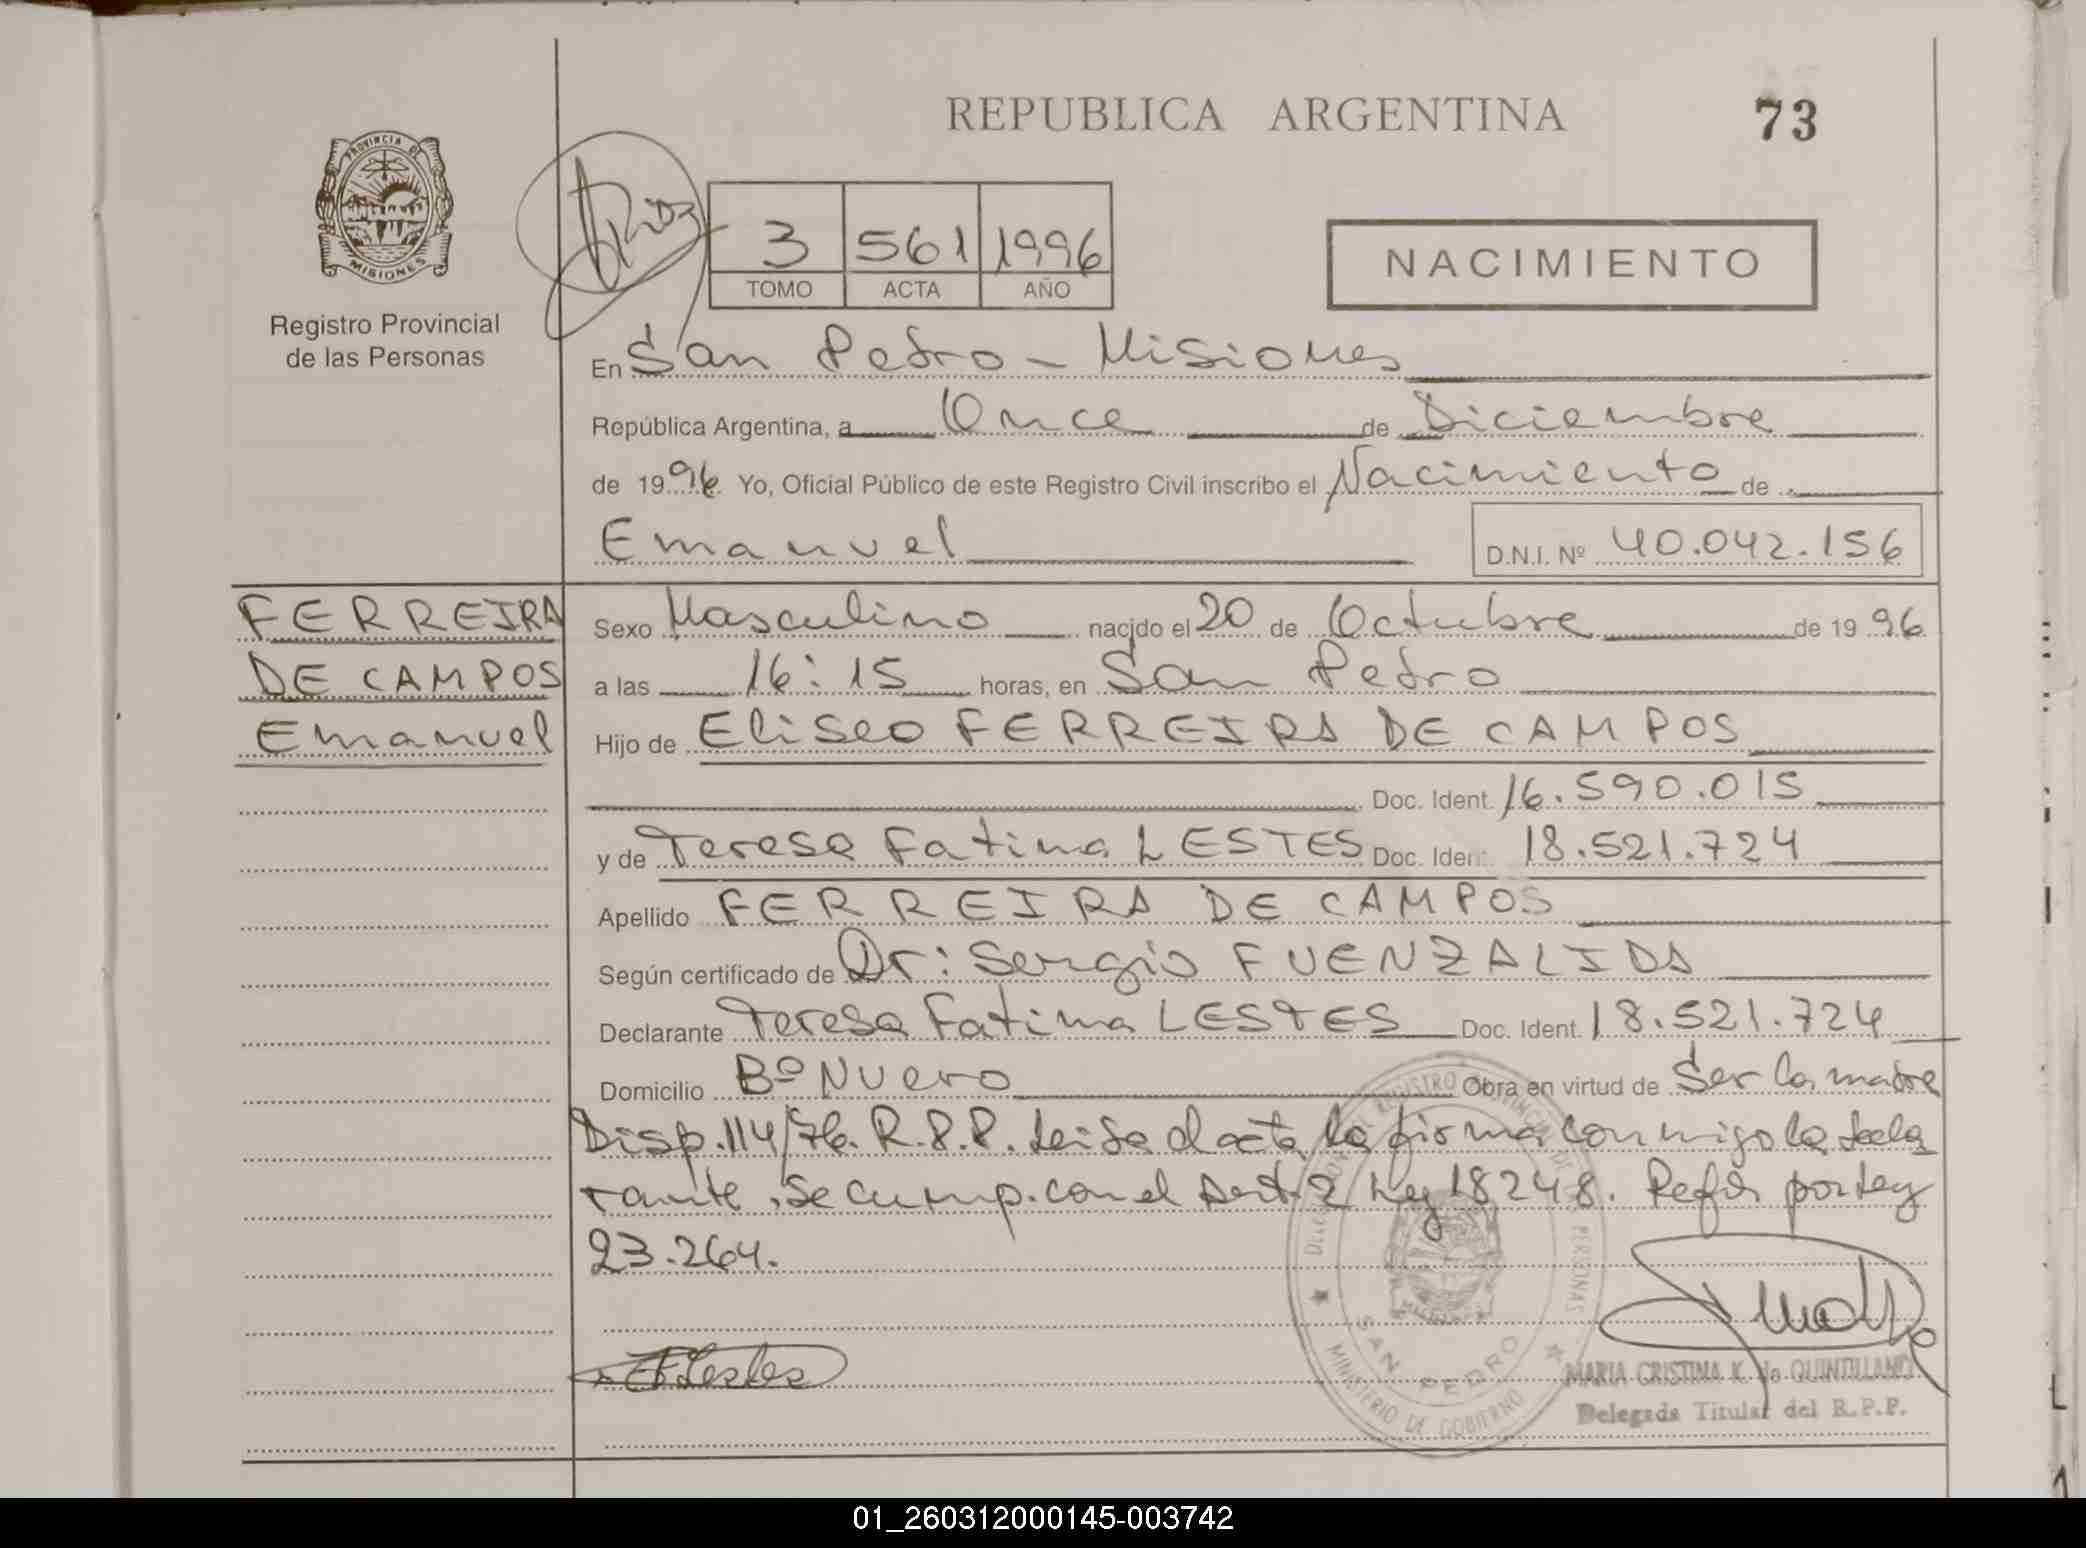 REPUBLICA ARGENTINA
73
PROVINCIA DE MISIONES
Registro Provincial
de las Personas
3 561 1996
TOMO ACTA AÑO
NACIMIENTO
En San Pedro - Misiones
República Argentina, a Once de Diciembre
de 1996 Yo, Oficial Público de este Registro Civil inscribo el Nacimiento de
Emanuel D.N.I. Nº 40.042.156
FERREIRA
DE CAMPOS
Emanuel
Sexo Masculino nacido el 20 de Octubre de 1996
a las 16:15 horas, en San Pedro
Hijo de Eliseo FERREIRA DE CAMPOS
Doc. Ident. 16.590.015
y de Teresa Fatima LESTES Doc. Ident. 18.521.724
Apellido FERREIRA DE CAMPOS
Según certificado de Dr: Sergio FUENZALIDA
Declarante Teresa Fatima LESTES Doc. Ident. 18.521.724
Domicilio Bº Nuevo Obra en virtud de Ser la madre
Disp. 114/76. R.P.P. Leida el acta, la firma conmigo la decla
rante, se cump. con el Art. 2 Ley 18248. Ref. por Ley
23.264.
SAN PEDRO
MINISTERIO DE GOBIERNO
T F Lestes
MARIA CRISTINA K. de QUINTILLANO
Delegada Titular del R.P.P.
01_260312000145-003742